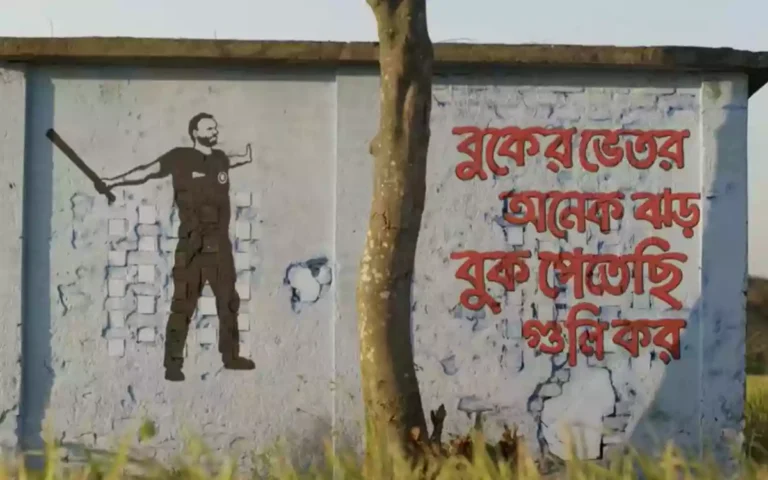 বুকের ভেতর
অনেক ঝড়
বুক পেতেছি
গুলি কর